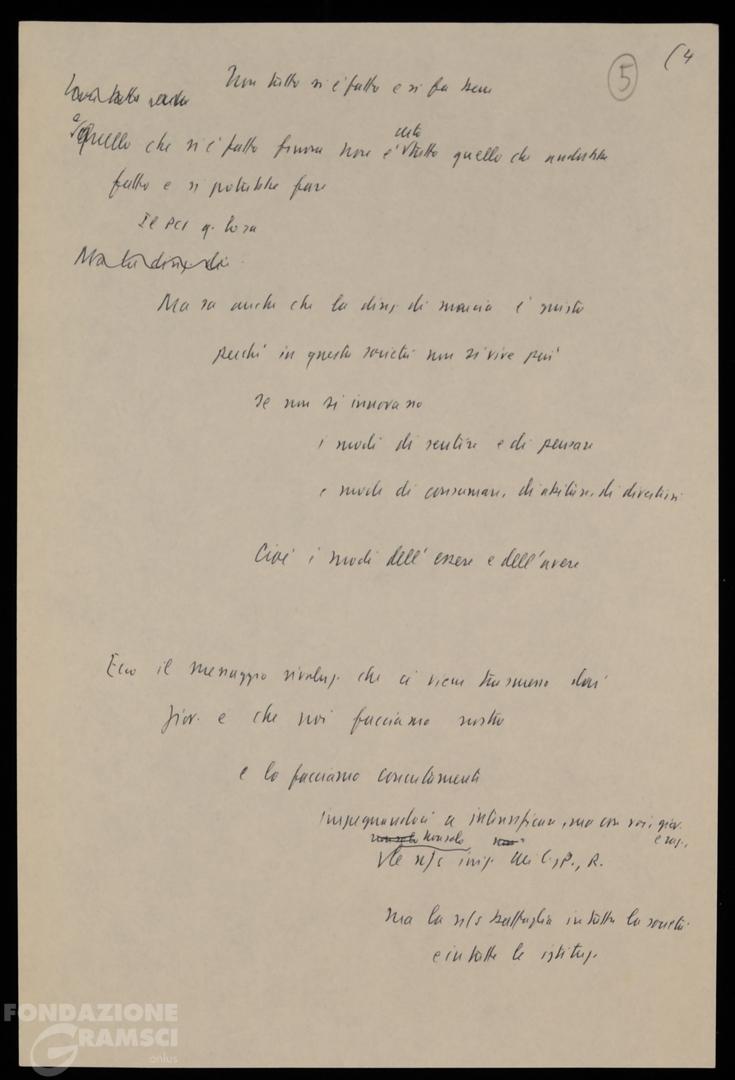 5
(4
Non tutto si è fatto e si fa bene
Quello che si è fatto finora non è certo tutto quello che andrebbe
fatto e si potrebbe fare
Il PCI q. lo sa
Ma sa anche che la direz. di marcia è giusta
perché in questa società non si vive più
se non si innovano
i modi di sentire e di pensare
e modi di consumare, di abitare, di divertirsi
Cioè i modi dell'essere e dell'avere
Ecco il messaggio rivoluz. che ci viene trasmesso dai
giov. e che noi facciamo nostro
e lo facciamo concretamente
impegnandoci a intensificare, ma con voi, giov.
e rag.,
non solo
le n/s iniz.
ma la n/s battaglia in tutta la società
e in tutte le istituz.
FONDAZIONE
GRAMSCI
onlus